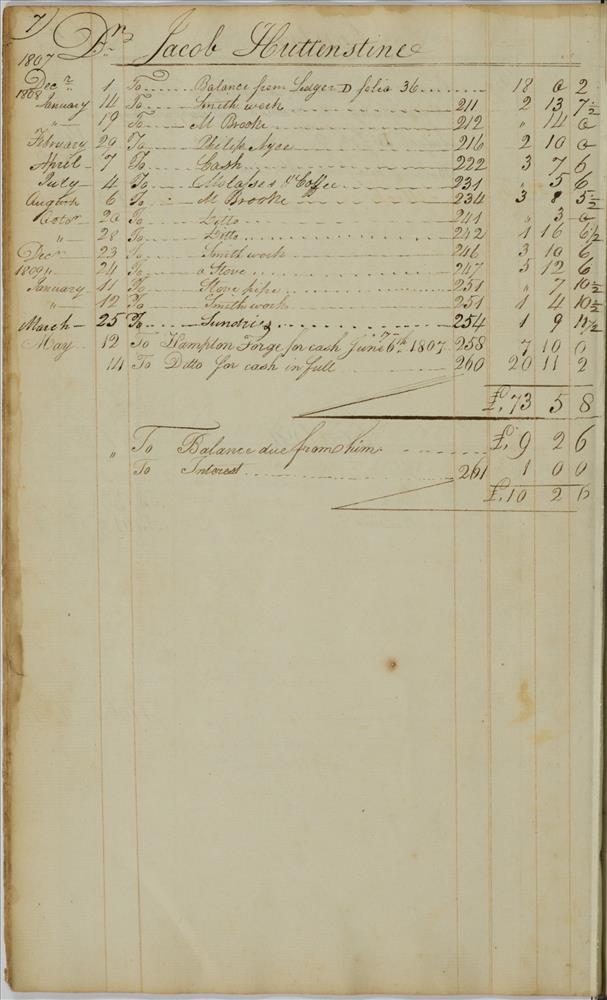 7
Dr Jacob Huttenstine
1807
Decr 1 To Balance from Ledger D folio 36 18 0 2
1808
January 14 To Smith work 211 2 13 7 1/2
" 19 To M Brooke 212 " 14 0
February 29 To Philip Ayee 216 2 10 0
April 7 To Cash 222 3 7 6
July 4 To Molasses & Coffee 231 " 5 6
August 6 To M Brooke 234 3 8 5 1/2
Octor 20 To Ditto 241 " 3 0
" 28 To Ditto 242 1 16 6 1/2
Decr 23 To Smith work 246 3 10 6
" 24 To a Stove 247 5 12 6
1809
January 11 To Stove pipe 251 " 7 10 1/2
" 12 To Smith work 251 1 4 10 1/2
March 25 To Sundries 254 1 9 11 1/2
May 12 To Hampton Forge for cash June 6th 1807 258 7 10 0
14 To Ditto for cash in full 260 20 11 2
£ 73 5 8
" To Balance due from him £ 9 2 6
To Interest 261 1 0 0
£ 10 2 6